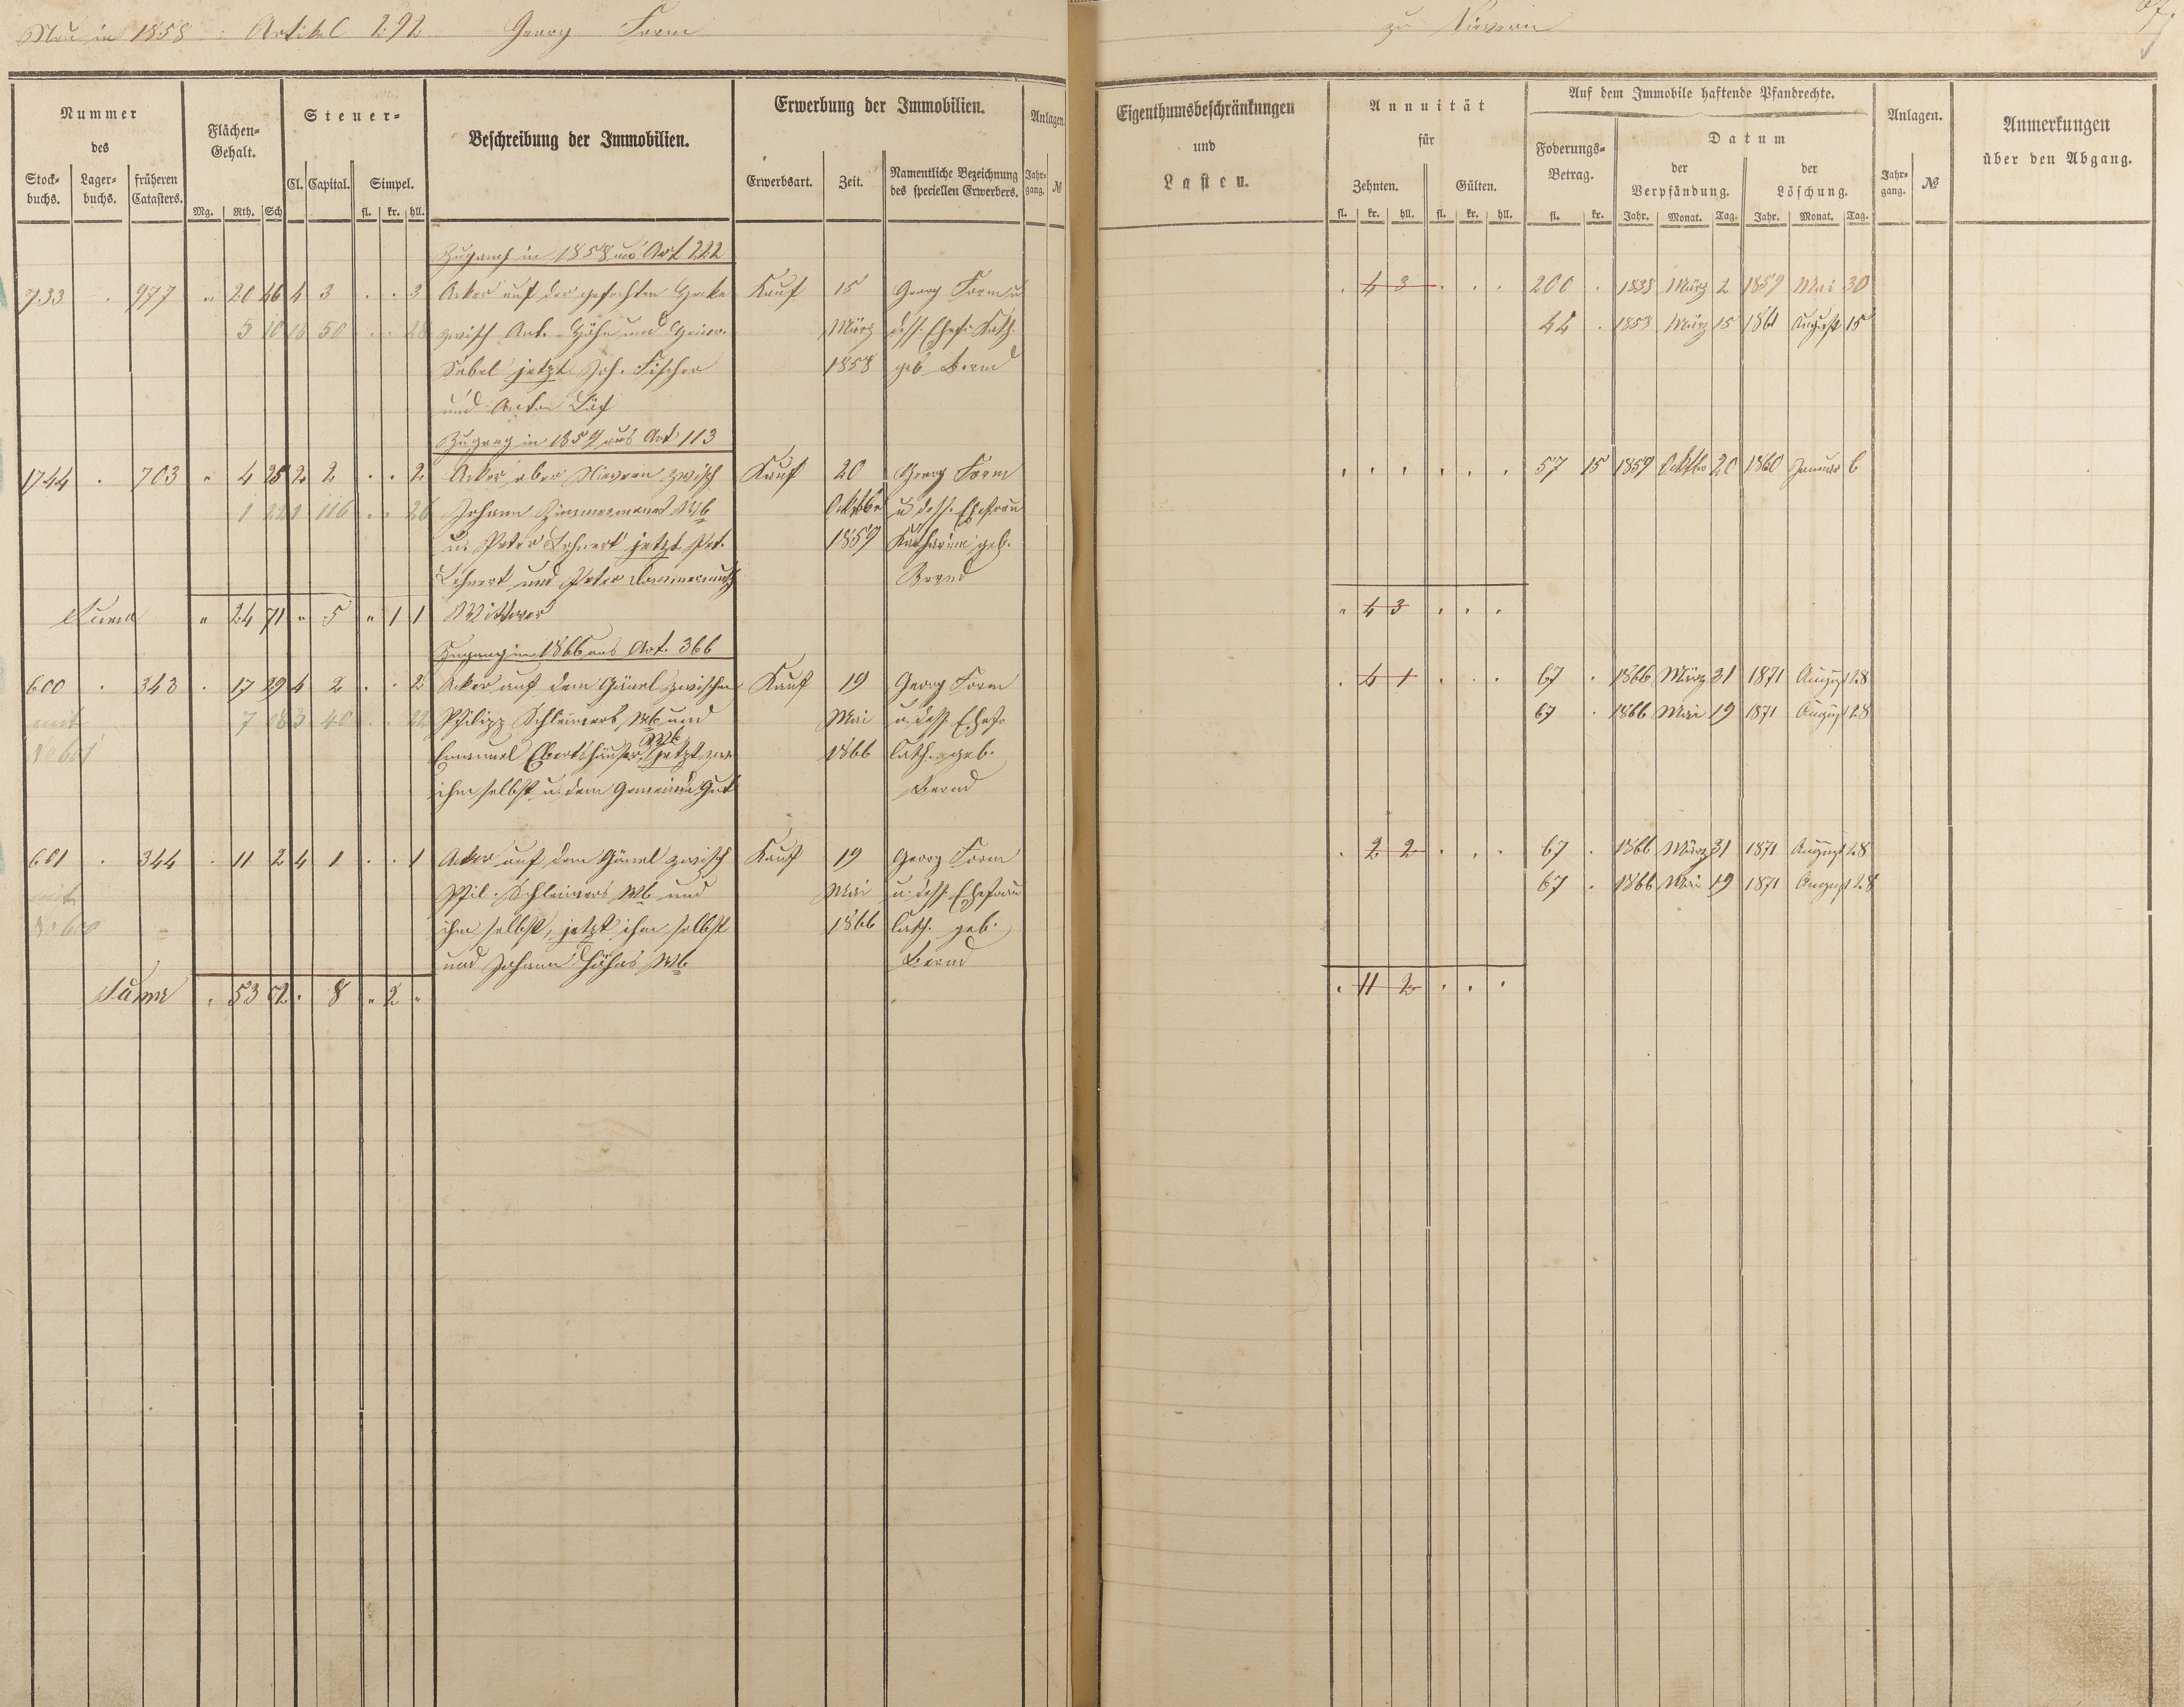 Neu in 1858 Artikel 292 Georg Form
zu Nievern
Nummer
des
Stock-
buchs.
Lager-
buchs.
früheren
Catasters.
Flächen-
Gehalt.
Mg. Rth. Sch
Steuer-
Cl. Capital. Simpel.
fl. kr. hll.
Beschreibung der Immobilien.
Erwerbung der Immobilien.
Erwerbsart. Zeit. Namentliche Bezeichnung
des speciellen Erwerbers.
Anlagen.
Jahr-
gang. №
Eigenthumsbeschränkungen
und
Lasten.
Annuität
für
Zehnten. Gülten.
fl. kr. hll. fl. kr. hll.
Auf dem Immobile haftende Pfandrechte.
Foderungs-
Betrag.
fl. kr.
Datum
der
Verpfändung.
der
Löschung.
Jahr. Monat. Tag. Jahr. Monat. Tag.
Anlagen.
Jahr-
gang. №
Anmerkungen
über den Abgang.
Zugang in 1858 aus Art 222
733 . 977 " 20 46 4 3 . . 3 Acker auf der Hecke Kauf 15 Georg Form u . 4 3 . . . 200 . 1838 März 2 1859 Mai 30
5 10 50 zwisch Ant. Höhn und März dess. Ehefr. Kath. 44 . 1853 März 15 1861 August 15
Sabel jetzt Joh. Fischer 1858 geb Bernd
und Anton
Zugang in 1859 aus Art 113
1744 . 703 " 4 25 2 2 . . 2 Acker ober Nievern zwisch Kauf 20 Georg Form . . . . . . 57 15 1859 Oktbr 20 1860 Januar 6
1 116 . . 26 Johann Zimmermanns Wb Oktober u. dess. Ehefrau
u. Peter Lehnert jetzt Pet. 1859 Katharine geb.
Lehnert und Peter Bernd
Suma " 24 71 " 5 " 1 1 Wittwer " 4 3 . . .
Zugang in 1866 aus Art. 366
600 . 343 . 17 29 4 2 . . 2 Acker auf dem zwischen Kauf 19 Georg Form . 4 1 . . . 67 . 1866 März 31 1871 August 28
mit 7 40 . . 22 Philipp Wb und Mai u. dess. Ehefr. 67 . 1866 Mai 19 1871 August 28
No 601 Emanuel Ebertshäuser Wb jetzt zw. 1866 Cath. geb.
ihm selbst u. dem Gemeinde Gut Bernd
601 . 344 . 11 2 4 1 . . 1 Acker auf dem zwisch Kauf 19 Georg Form . 2 2 . . . 67 . 1866 März 31 1871 August 28
mit Phil. Wb und Mai u. dess. Ehefrau 67 . 1866 Mai 19 1871 August 28
No 600 ihm selbst, jetzt ihm selbst 1866 Cath. geb.
und Johann Höhns Wb Bernd
Suma . 53 02 . 8 " 2 " . 11 2 . . .